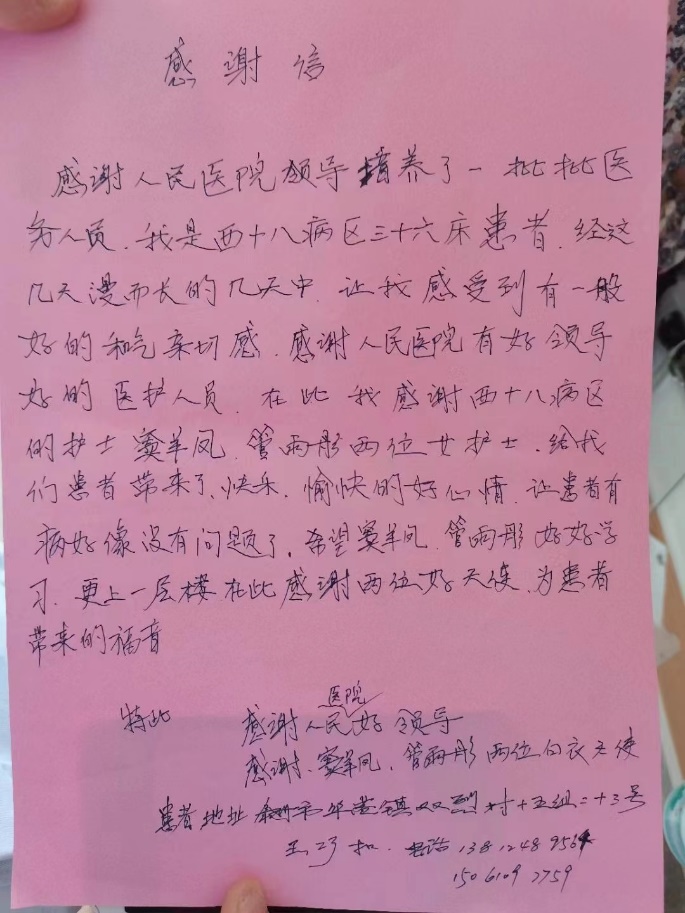 感谢信
感谢人民医院领导培养了一批批医
务人员.我是西十八病区三十六床患者.经这
几天漫而长的几天中.让我感受到有一般
好的和气亲切感.感谢人民医院有好领导
好的医护人员.在此我感谢西十八病区
的护士窦羊凤.管雨彤两位女护士.给我
们患者带来了、快乐.愉快的好心情.让患者有
病好像没有问题了.希望窦羊凤.管雨彤好好学
习.更上一层楼.在此感谢两位好天使.为患者
带来的福音
特此 感谢人民医院好领导
感谢、窦羊凤、管雨彤两位白衣天使
患者地址 镇双烈村十五组二十三号
电话 138 1248 956
150 6109 2759